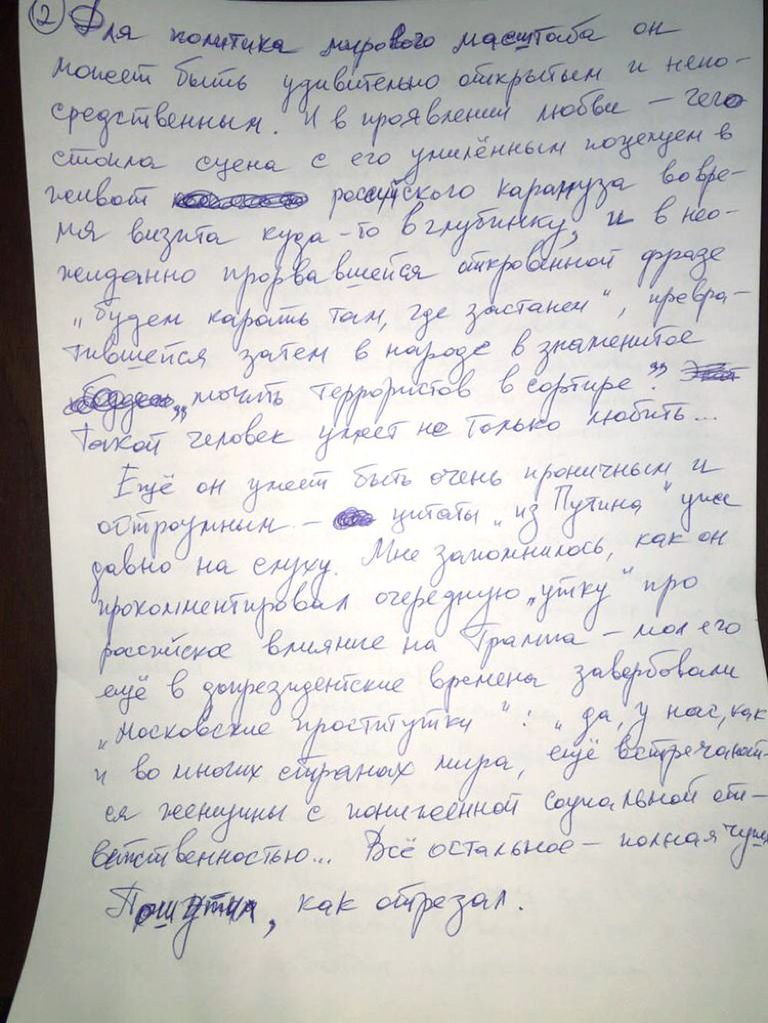 2 Для политика мирового масштаба он
может быть удивительно открытым и непо-
средственным. И в проявлении любви – чего
стоила сцена с его умилённым поцелуем в
живот российского карапуза во вре-
мя визита куда-то в глубинку, и в нео-
жиданно прорвавшейся откровенной фразе
„будем карать там, где застанем“, превра-
тившейся затем в народе в знаменитое
„мочить террористов в сортире“.
Такой человек умеет не только любить...
Ещё он умеет быть очень ироничным и
остроумным – цитаты „из Путина“ уже
давно на слуху. Мне запомнилось, как он
прокомментировал очередную „утку“ про
российское влияние на Трампа – мол его
ещё в допрезидентские времена завербовали
„московские проститутки“: „да, у нас, как
и во многих странах мира, ещё встречают-
ся женщины с пониженной социальной от-
ветственностью... Всё остальное – полная чушь
Пошутил, как отрезал.